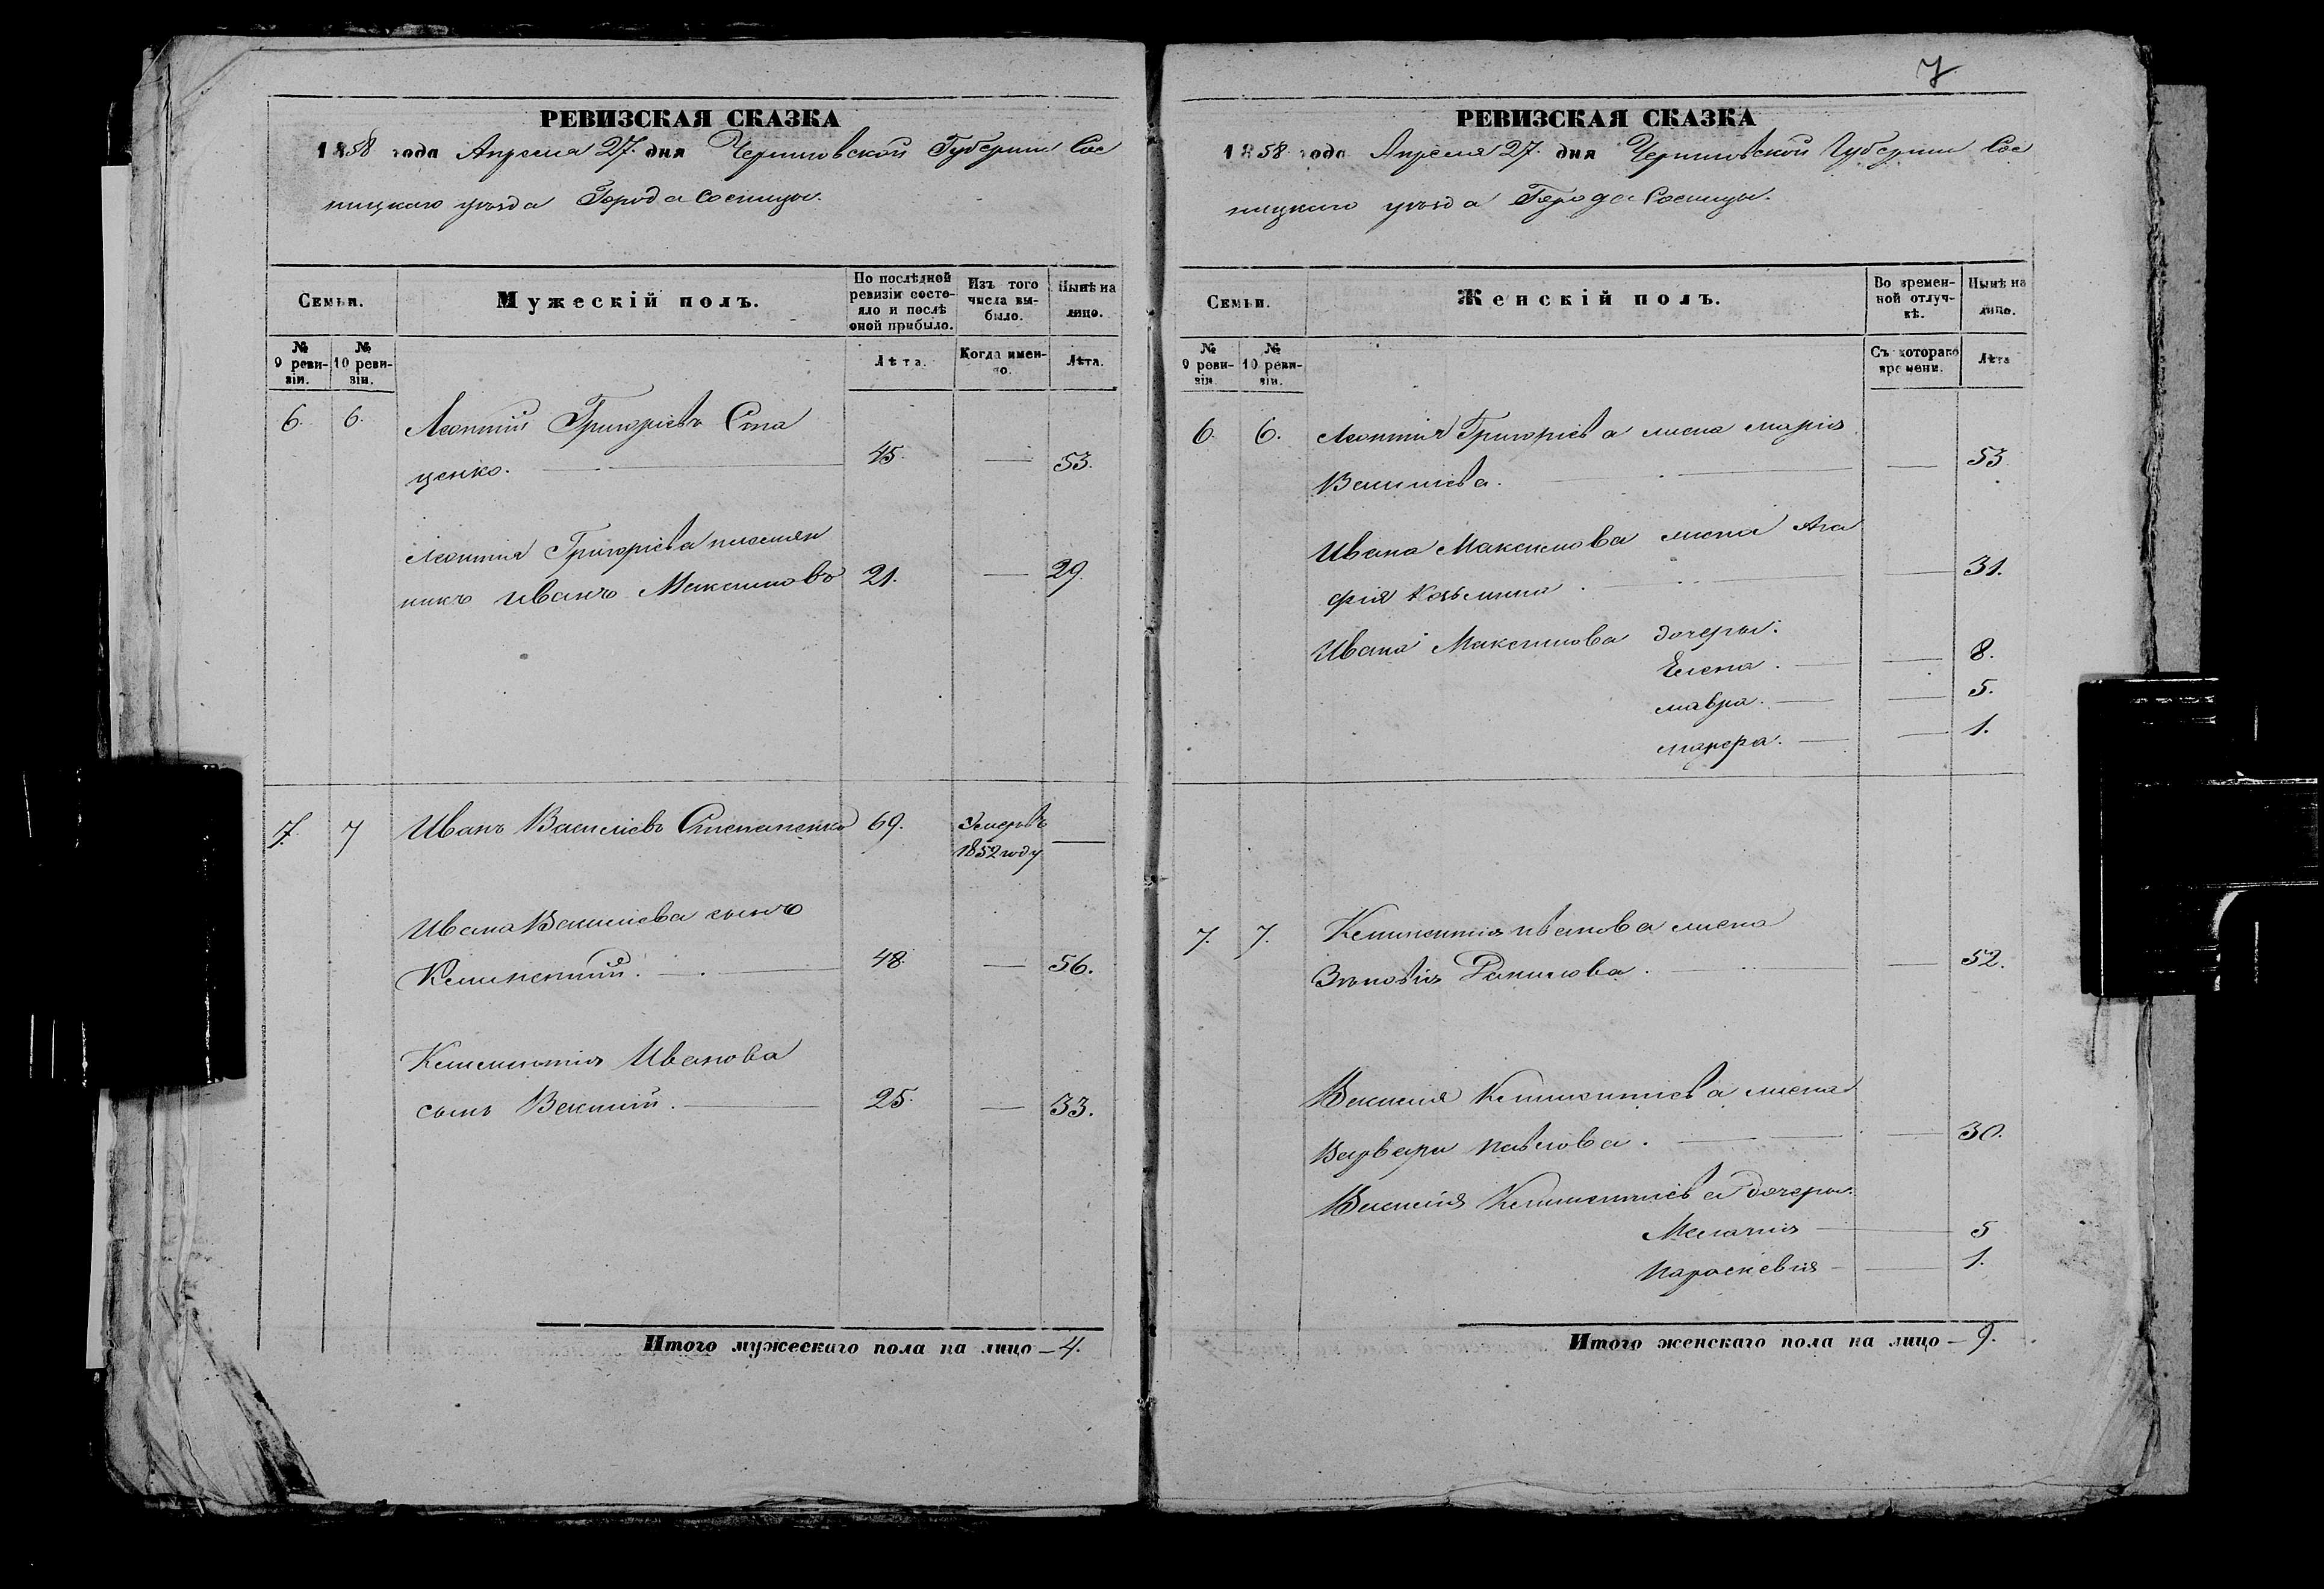 РЕВИЗСКАЯ СКАЗКА
1858 года Апреля 27. дня Черниговской Губернии Сос
ницкаго уѣзда Города Сосницы.
Семьи.
Мужескій полъ.
По послѣдней ревизіи состояло и послѣ оной прибыло.
Изъ того числа выбыло.
Нынѣ на лицо.
№ 9 ревизіи.
№ 10 ревизіи.
Лѣта.
Когда именно.
Лѣта.
6. 6. Леонтій Григоріевъ Ста
ценко. 45. — 53.
Леонтия Григоріева племян
никъ Иванъ Максимовъ 21. — 29.
7. 7 Иванъ Василіевъ Степаненко 69. Умеръ въ —
1852 году
Ивана Василиева сынъ
Климентий. 48. — 56.
Климентия Иванова
сынъ Василий. 25. — 33.
Итого мужескаго пола на лицо — 4.
7
РЕВИЗСКАЯ СКАЗКА
1858 года Апреля 27. дня Черниговской Губернии Сос
ницкаго уѣзда Города Сосницы.
Семьи.
Женскій полъ.
Во временной отлучкѣ.
Нынѣ на лицо.
№ 9 ревизіи.
№ 10 ревизіи.
Съ котораго времени.
Лѣта
6. 6. Леонтия Григоріева жена Марія
Василиева. — 53
Ивана Максимова жена Ага
фия Козьмина. — 31.
Ивана Максимова дочеры:
Елена. — 8.
Мавра. — 5.
— 1.
7. 7. Климентия Иванова жена
Зѣновія — 52.
Василия Климентиева жена
Варвара Павлова. — 30.
Василия Климентиева дочеры.
Мелания — 5
Параскевия — 1.
Итого женскаго пола на лицо — 9.